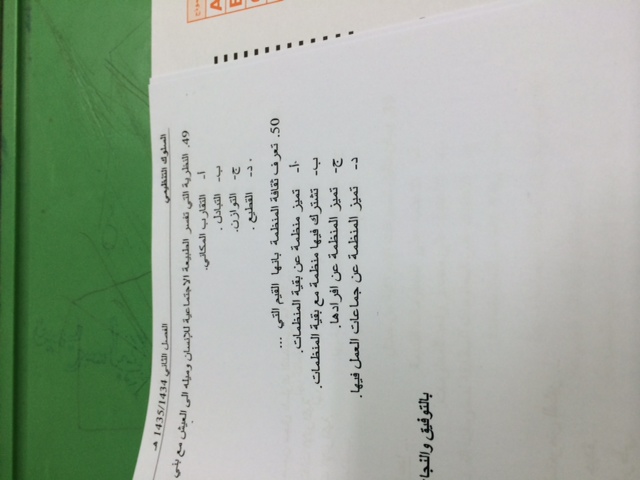 السلوك التنظيمي الفصل الثاني 1435/1434 هـ
49. النظرية التي تفسر الطبيعة الاجتماعية للإنسان وميله الى العيش مع بني
أ- التقارب المكاني.
ب- التبادل.
ج- التوازن.
د- القطيع.
50. تعرف ثقافة المنظمة بانها القيم التي ...
أ- تميز منظمة عن بقية المنظمات.
ب- تشترك فيها منظمة مع بقية المنظمات.
ج- تميز المنظمة عن افرادها.
د- تميز المنظمة عن جماعات العمل فيها.
بالتوفيق والنجا
A